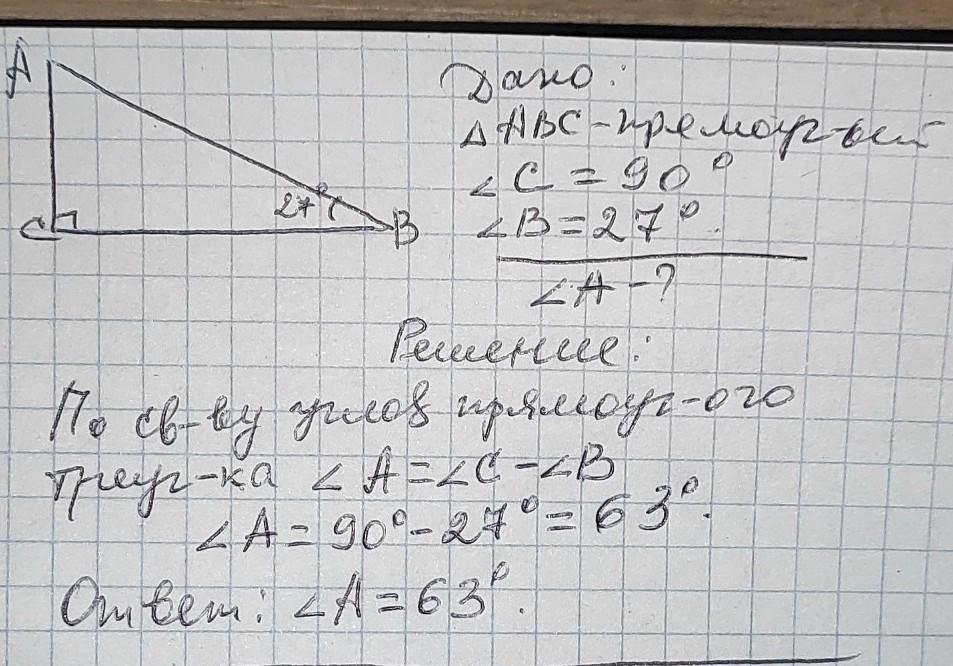 A
Дано:
△ABC-прямоуг-ый
∠C = 90°
27°
C
B
∠B = 27°.
∠A - ?
Решение:
По св-ву углов прямоуг-ого
треуг-ка ∠A = ∠C - ∠B
∠A = 90° - 27° = 63°.
Ответ: ∠A = 63°.